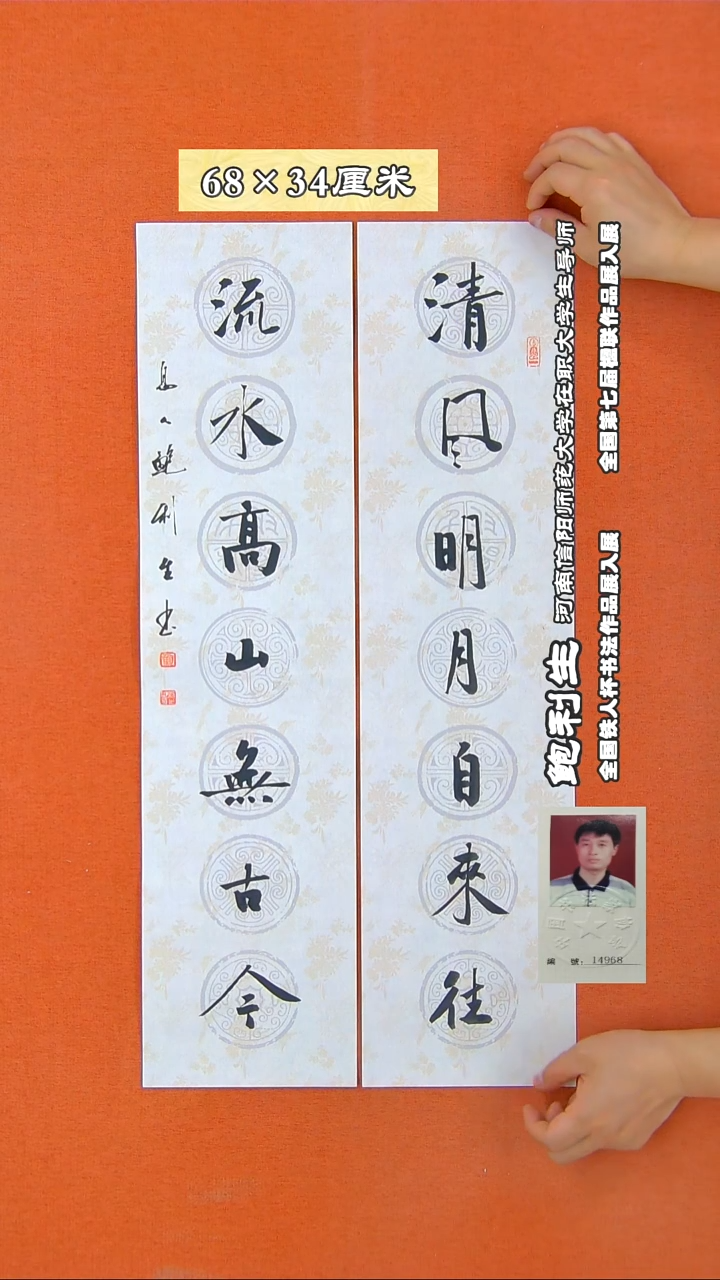 68×34厘米
清风明月自來往
流水髙山無古今
鲍利生书
鲍利生 河南信阳师范大学在职大学生导师
全国铁人杯书法作品展入展 全国第七届楹联作品展入展
編 號: 14968